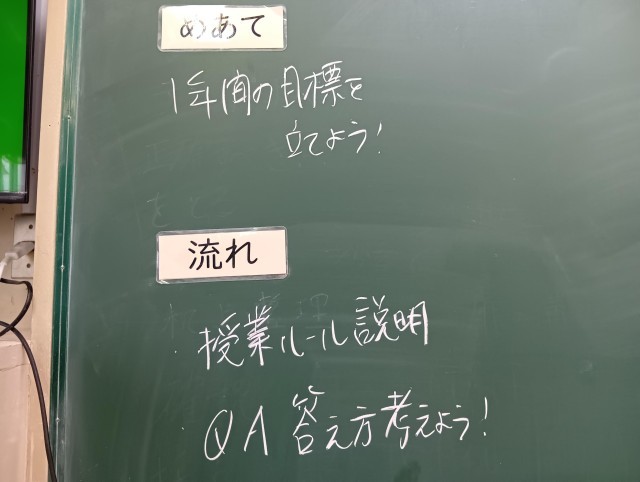 めあて
1年間の目標を
立てよう!
流れ
・授業ルール説明
・QA 答え方考えよう!